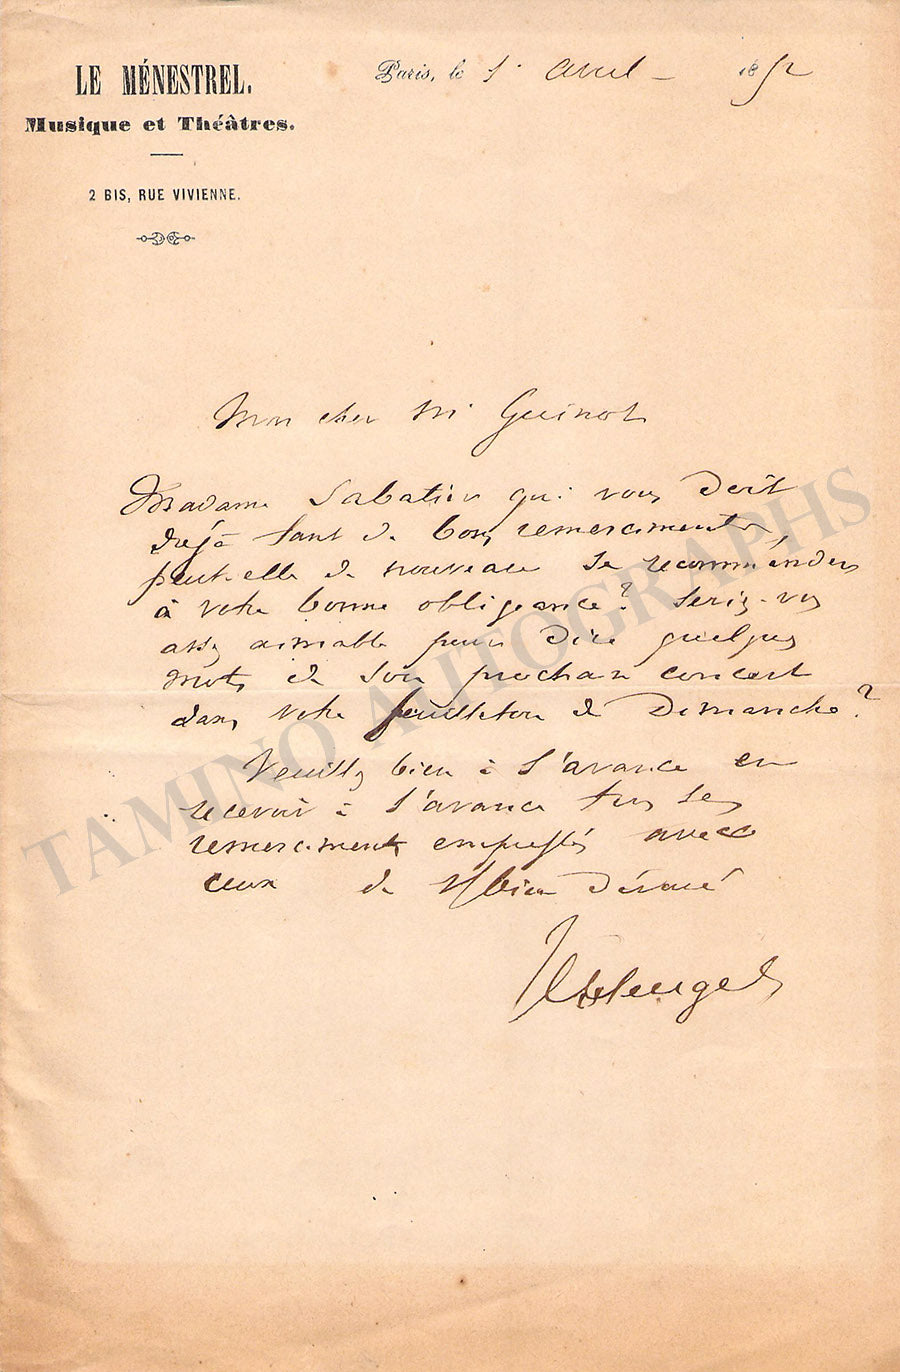 LE MÉNESTREL.
Musique et Théâtres.
2 BIS, RUE VIVIENNE.
Paris, le 5 avril 1852
Mon cher Mr Guinot
Madame Sabatier qui vous doit
déjà tant de bons remerciments,
peut-elle de nouveau se recommander
à votre bonne obligeance? Seriez-vous
assez aimable pour dire quelques
mots de son prochain concert
dans votre feuilleton de Dimanche?
Veuillez bien à l'avance en
recevoir à l'avance tous ses
remerciments empressés avec
ceux de Vtre bien dévoué
TAMINO AUTOGRAPHS